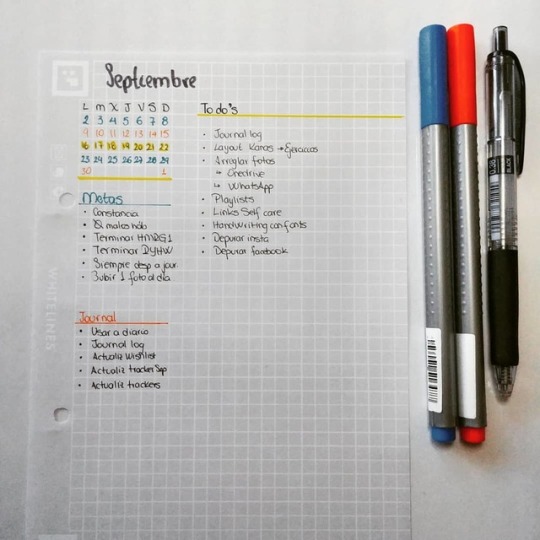 Septiembre
L M X J V S D
2 3 4 5 6 7 8
9 10 11 12 13 14 15
16 17 18 19 20 21 22
23 24 25 26 27 28 29
30 1
Metas
• Constancia
• malos
• Terminar HMDG1
• Terminar DYHW
• Siempre desp a jour
• Subir 1 foto al día
Journal
• Usar a diario
• Journal log
• Actualiz Wishlist
• Actualiz tracker Sep
• Actualiz trackers
To do's
• Journal log
• Layout Karas → Ejercicios
• Arreglar fotos
↳ Onedrive
↳ WhatsApp
• Playlists
• Links Self care
• Handwriting con fonts
• Depurar insta
• Depurar facebook
WHITELINES
0.38
BLACK